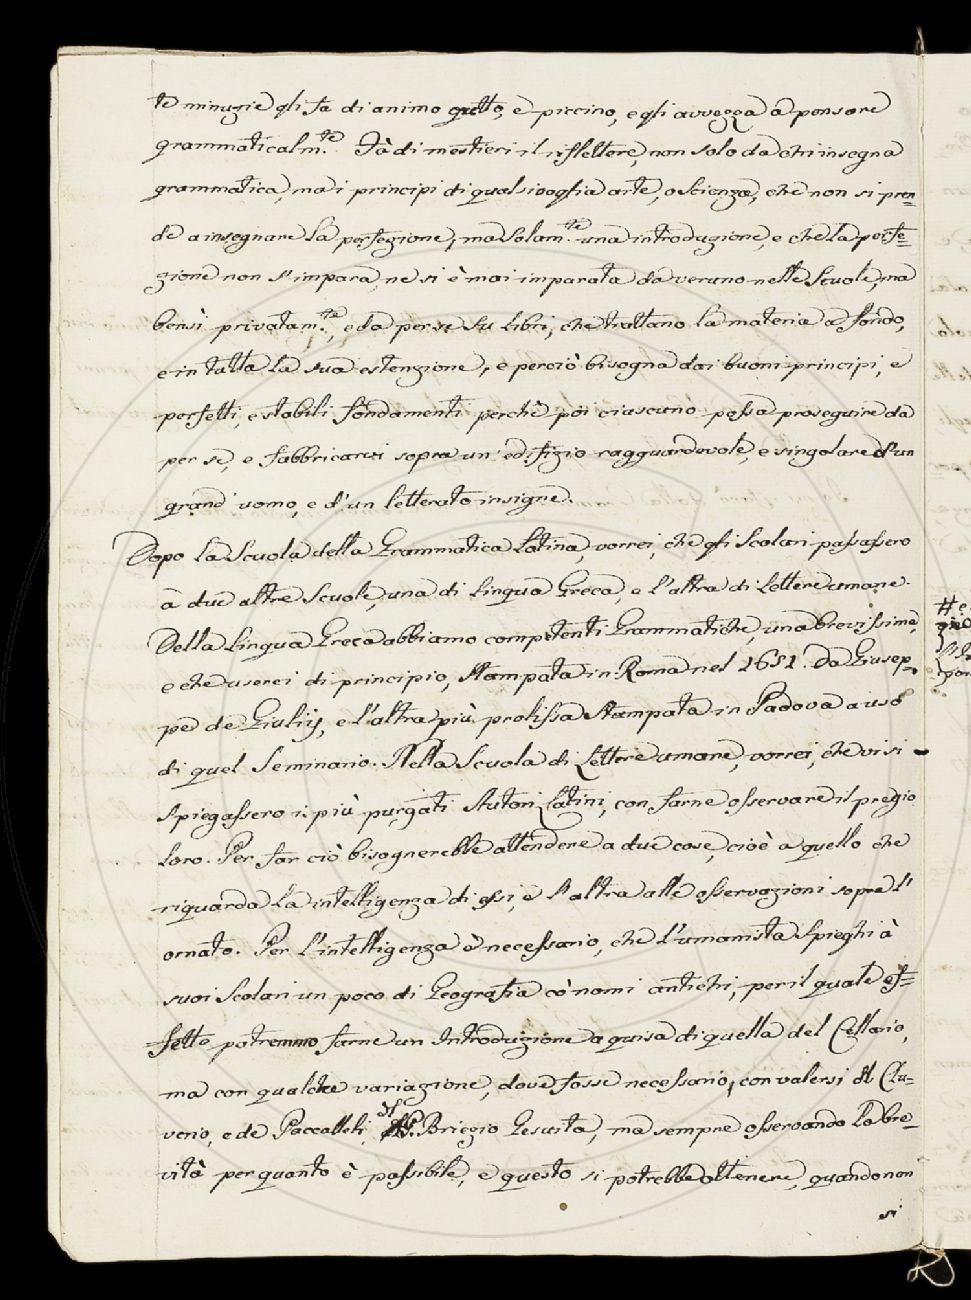 te minuzie gli fa di animo gretto, e piccino, e gli avvezza a pensare
grammaticalm.te Fà di mestieri il riflettere, non solo da chi insegna
grammatica, ma i principi di qualsivoglia arte, o scienza, che non si pren=
de a insegnare la perfezione, ma solam.te una introduzione, e che la perfe=
zione non s'impara, ne si è mai imparata da veruno nelle Scuole, ma
bensì privatam.te, e da per se su libri, che trattano la materia a fondo,
e in tutta la sua estenzione, e perciò bisogna dai buoni principi, e
perfetti, e stabili fondamenti perchè poi ciascuno possa proseguire da
per se, e fabbricarvi sopra un' edifizio ragguardevole, e singolare d'un
grand' uomo, e d'un letterato insigne.
Dopo la Scuola della Grammatica Latina, vorrei, che gli Scolari passassero
a due altre Scuole, una di lingua Greca, e l'altra di Lettere umane.
Della lingua Greca abbiamo competenti Grammatiche, una brevissima,
e che userei di principio, stampata in Roma nel 1681. Da Giusep=
pe de Giulij, e l'altra più prolissa stampata in Padova a uso
di quel Seminario. Nella Scuola di Lettere umane, vorrei, che vi si
spiegassero i più purgati Autori Latini, con farne osservare il pregio
loro. Per far ciò bisognerebbe attendere a due cose, cioè a quello che
riguarda la intelligenza di essi, e l'altra alle osservazioni sopra l'
ornato. Per l'intelligenza è necessario, che l'umanista spieghi à
suoi Scolari un poco di Geografia co' nomi antichi, per il quale ef=
fetto potremmo farne un Introduzione a guisa di quella del Cellario,
ma con qualche variazione, dove fosse necessario, con valersi del Clu=
verio, e de Paccalleti, del P. Briezio Gesuita, ma sempre osservando la bre=
vità per quanto è possibile, e questo si potrebbe ottenere, quando non
si